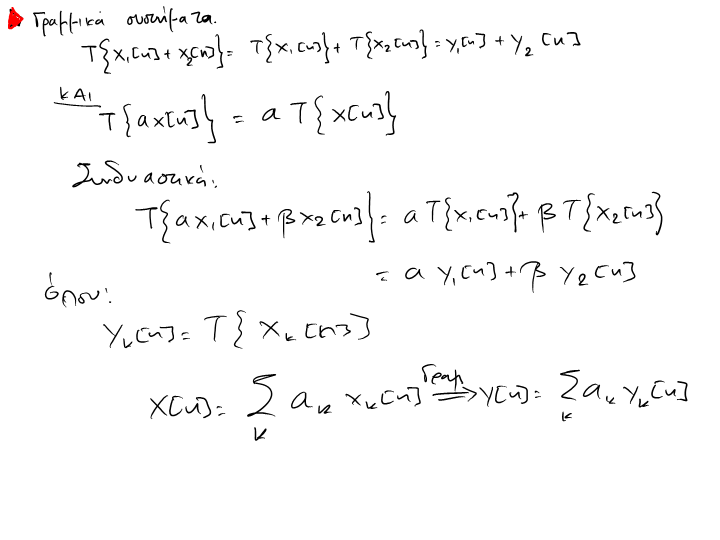 Γραμμικά συστήματα.
T{x₁[n] + x₂[n]} = T{x₁[n]} + T{x₂[n]} = y₁[n] + y₂[n]
ΚΑΙ
T{ax[n]} = a T{x[n]}
Συνδυαστικά:
T{ax₁[n] + βx₂[n]} = a T{x₁[n]} + β T{x₂[n]}
= a y₁[n] + β y₂[n]
όπου:
yₖ[n] = T{xₖ[n]}
x[n] = Σₖ aₖ xₖ[n] ⟹ (Γραμ) y[n] = Σₖ aₖ yₖ[n]